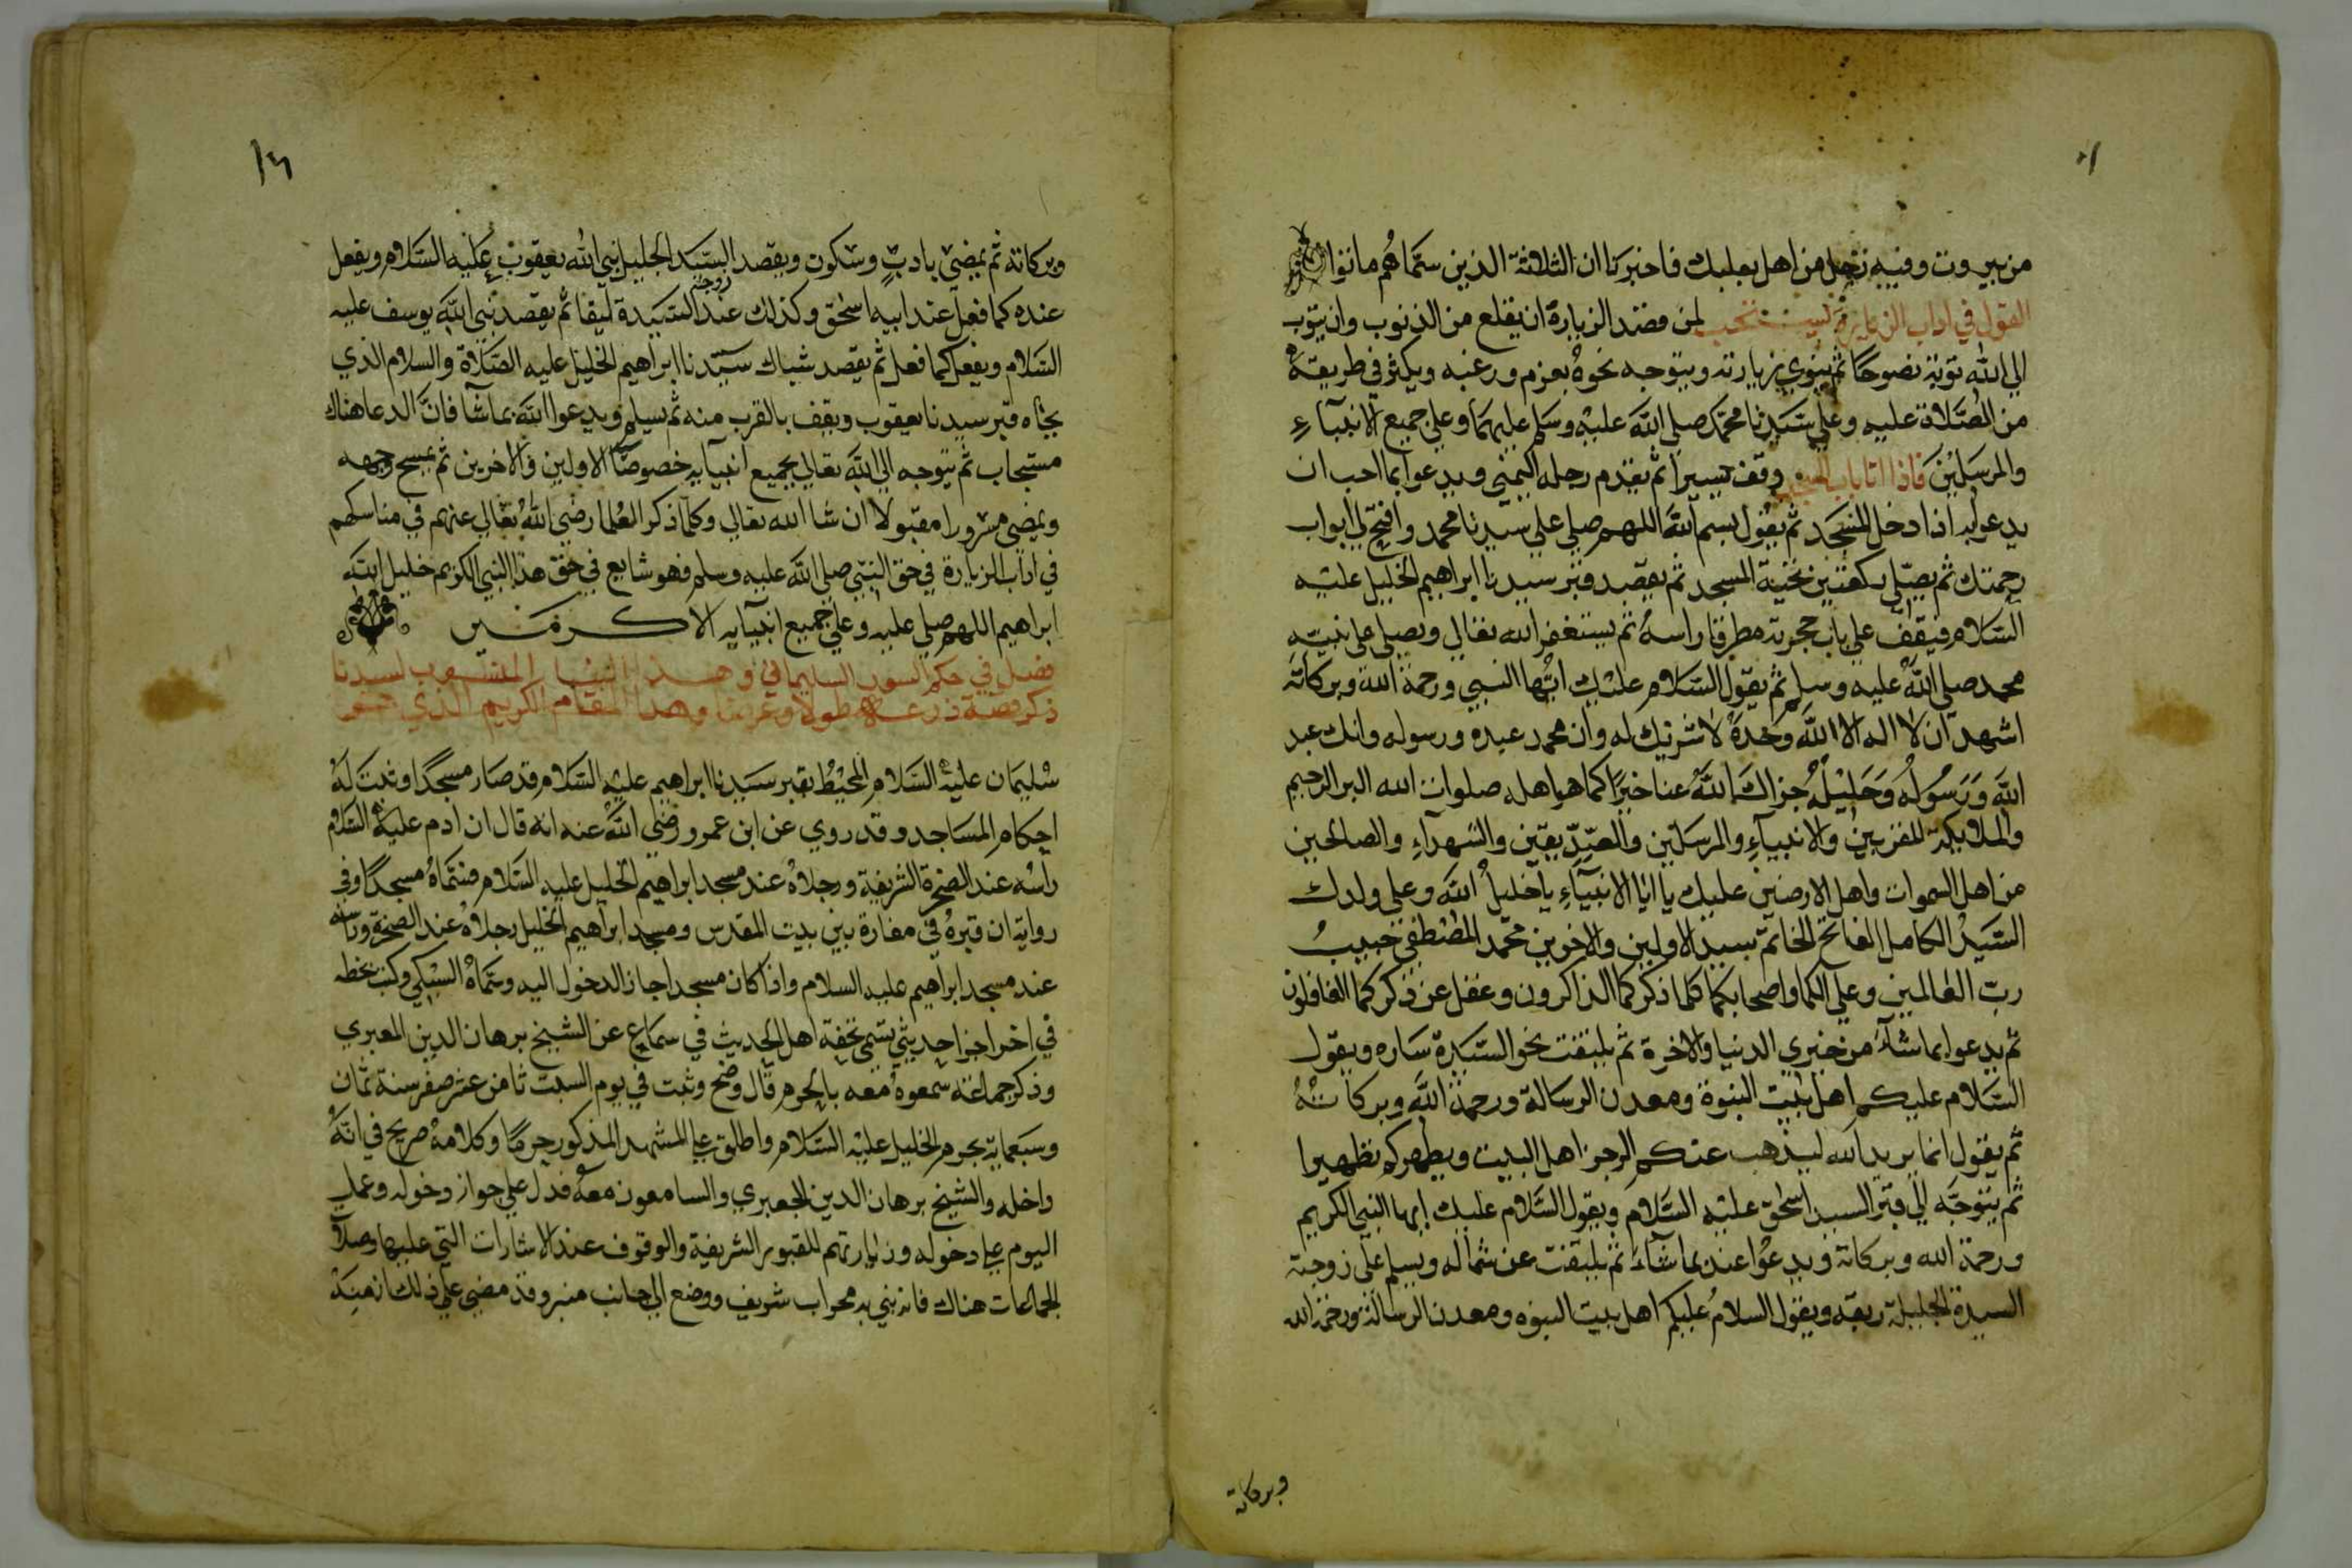 من بيروت وفيه رجل من اهل بعلبك فاخبرنا ان الثلاثة الذين سماهم ماتوا
القول في اداب الزيارة لمن قصد الزيارة ان يقلع من الذنوب وان يتوب
الي الله توبة نصوحا ثم ينوي زيارته ويتوجه نحوه بعزم ورغبه ويكثر في طريقه
من الصلاة عليه وعلي سيدنا محمد صلي الله عليه وسلم عليهما وعلي جميع الانبياء
والمرسلين فاذا اتا باب المسجد وقف يسيرا ثم يقدم رجله اليمني ويدعو ابما احب ان
يدعو به اذا دخل المسجد ثم يقول بسم الله اللهم صلي علي سيدنا محمد وافتح لي ابواب
رحمتك ثم يصلي ركعتين تحية المسجد ثم يقصد قبر سيدنا ابراهيم الخليل عليه
السلام فيقف علي باب حجرته مطرقا راسه ثم يستغفر الله تعالي ويصلي علي نبيه
محمد صلي الله عليه وسلم ثم يقول السلام عليك ايها النبي ورحمة الله وبركاته
اشهد ان لا اله الا الله وحده لا شريك له وان محمد عبده ورسوله وانك عبد
الله ورسوله وخليله جزاك الله عنا خيرا كما هو اهله صلوات الله البر الرحيم
والملايكة المقربين والانبياء والمرسلين والصديقين والشهداء والصالحين
من اهل السموات واهل الارضين عليك يا ابا الانبياء يا خليل الله وعلي ولدك
السيد الكامل الفاتح الخاتم سيد الاولين والاخرين محمد المصطفي حبيب
رب العالمين وعلي الكما واصحابكما كلما ذكركما الذاكرون وغفل عن ذكركما الغافلون
ثم يدعو ابما شاء من خيري الدنيا والاخرة ثم يلتفت نحو السيدة ساره ويقول
السلام عليكم اهل بيت النبوة ومعدن الرسالة ورحمة الله وبركاته
ثم يقول انما يريد الله ليذهب عنكم الرجز اهل البيت ويطهركم تطهيرا
ثم يتوجه الي قبر السيد اسحق عليه السلام ويقول السلام عليك ايها النبي الكريم
ورحمة الله وبركاته ويدعوا عنده بما شاء ثم يلتفت عن شماله ويسلم علي زوجته
السيدة الجليلة ربقه ويقول السلام عليكم اهل بيت النبوه ومعدن الرسالة ورحمة الله
وبركاته
١٦
وبركاته ثم يمضي بادب وسكون ويقصد السيد الجليل نبي الله يعقوب عليه السلام ويفعل
عنده كما فعل عند ابيه اسحق وكذلك عند زوجته السيدة ليقا ثم يقصد نبي الله يوسف عليه
السلام ويفعل كما فعل ثم يقصد شباك سيدنا ابراهيم الخليل عليه الصلاة والسلام الذي
تجاه قبر سيدنا يعقوب ويقف بالقرب منه ثم يسلم ويدعوا الله بما شا فان الدعا هناك
مستجاب ثم يتوجه الي الله تعالي بجميع انبيايه خصوصا الاولين والاخرين ثم يمسح وجهه
ويمضي مسرورا مقبولا ان شا الله تعالي وكلما ذكر العلما رضي الله تعالي عنهم في مناسكهم
في اداب الزيارة في حق النبي صلي الله عليه وسلم فهو شايع في حق هذا النبي الكريم خليل الله
ابراهيم اللهم صلي عليه وعلي جميع انبيايه الاكرمين
فصل في حكم السور السليماني وهذا البنيا المنسوب لسيدنا
ذكر قصة ذرعه طولا وعرضا وهذا المقام الكريم الذي هو
سليمان عليه السلام المحيط بقبر سيدنا ابراهيم عليه السلام قد صار مسجدا وثبت له
احكام المساجد وقد روي عن ابن عمر ورضي الله عنه انه قال ان ادم عليه السلام
راسه عند الصخرة الشريفة ورجلاه عند مسجد ابراهيم الخليل عليه السلام فسماه مسجدا وفي
رواية ان قبره في مغارة بين بيت المقدس ومسجد ابراهيم الخليل رجلاه عند الصخرة وراسه
عند مسجد ابراهيم عليه السلام واذا كان مسجدا جاز الدخول اليه وسماه السبكي وكتب بخطه
في اخر اجزا حديثي تسمي تحفة اهل الحديث في سماع عن الشيخ برهان الدين المعبري
وذكر جماعة سمعوه معه بالحرم قال وصح وثبت في يوم السبت ثامن عشر صفر سنة ثمان
وسبعماية بحرم الخليل عليه السلام واطلق علي المشهد المذكور حرما وكلامه صريح في انه
داخله والشيخ برهان الدين الجعبري والسامعون معه فدل علي جواز دخوله وعمل
اليوم علي دخوله وزيارتهم للقبور الشريفة والوقوف عند الاشارات التي عليها وصلاة
الجماعات هناك فانه بني به محراب شريف ووضع الي جانب منبر وقد مضي علي ذلك ازمنة